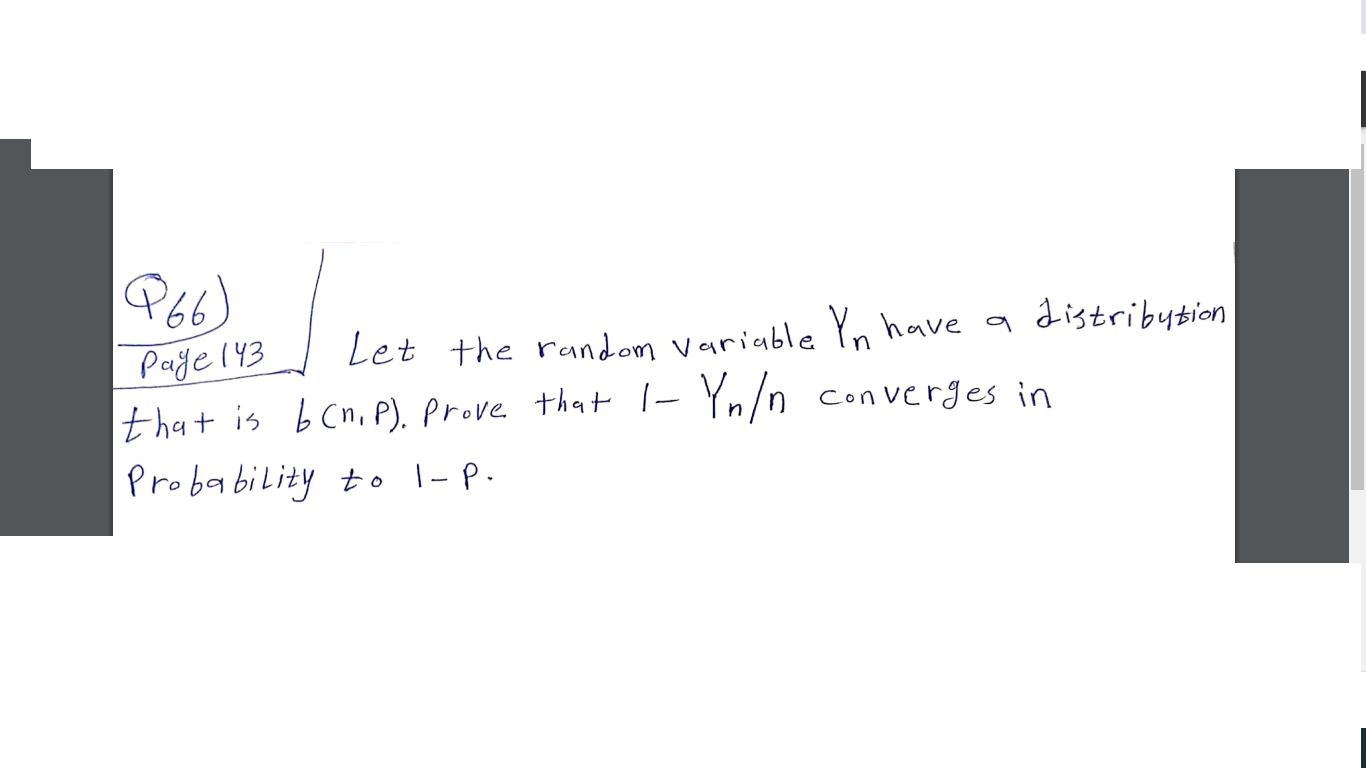 Q66)
Page 143
Let the random variable Yn have a distribution
that is b(n,p). Prove that 1- Yn/n converges in
Probability to 1-p.